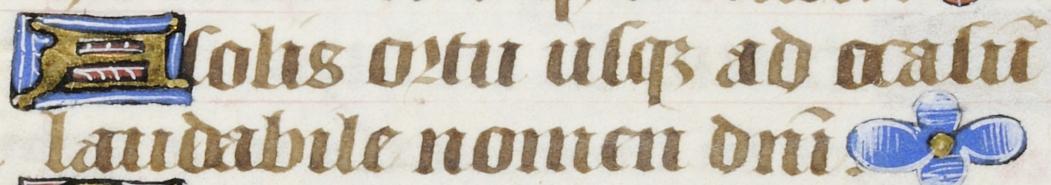 A solis ortu usq₃ ad occasū
laudabile nomen dnī.